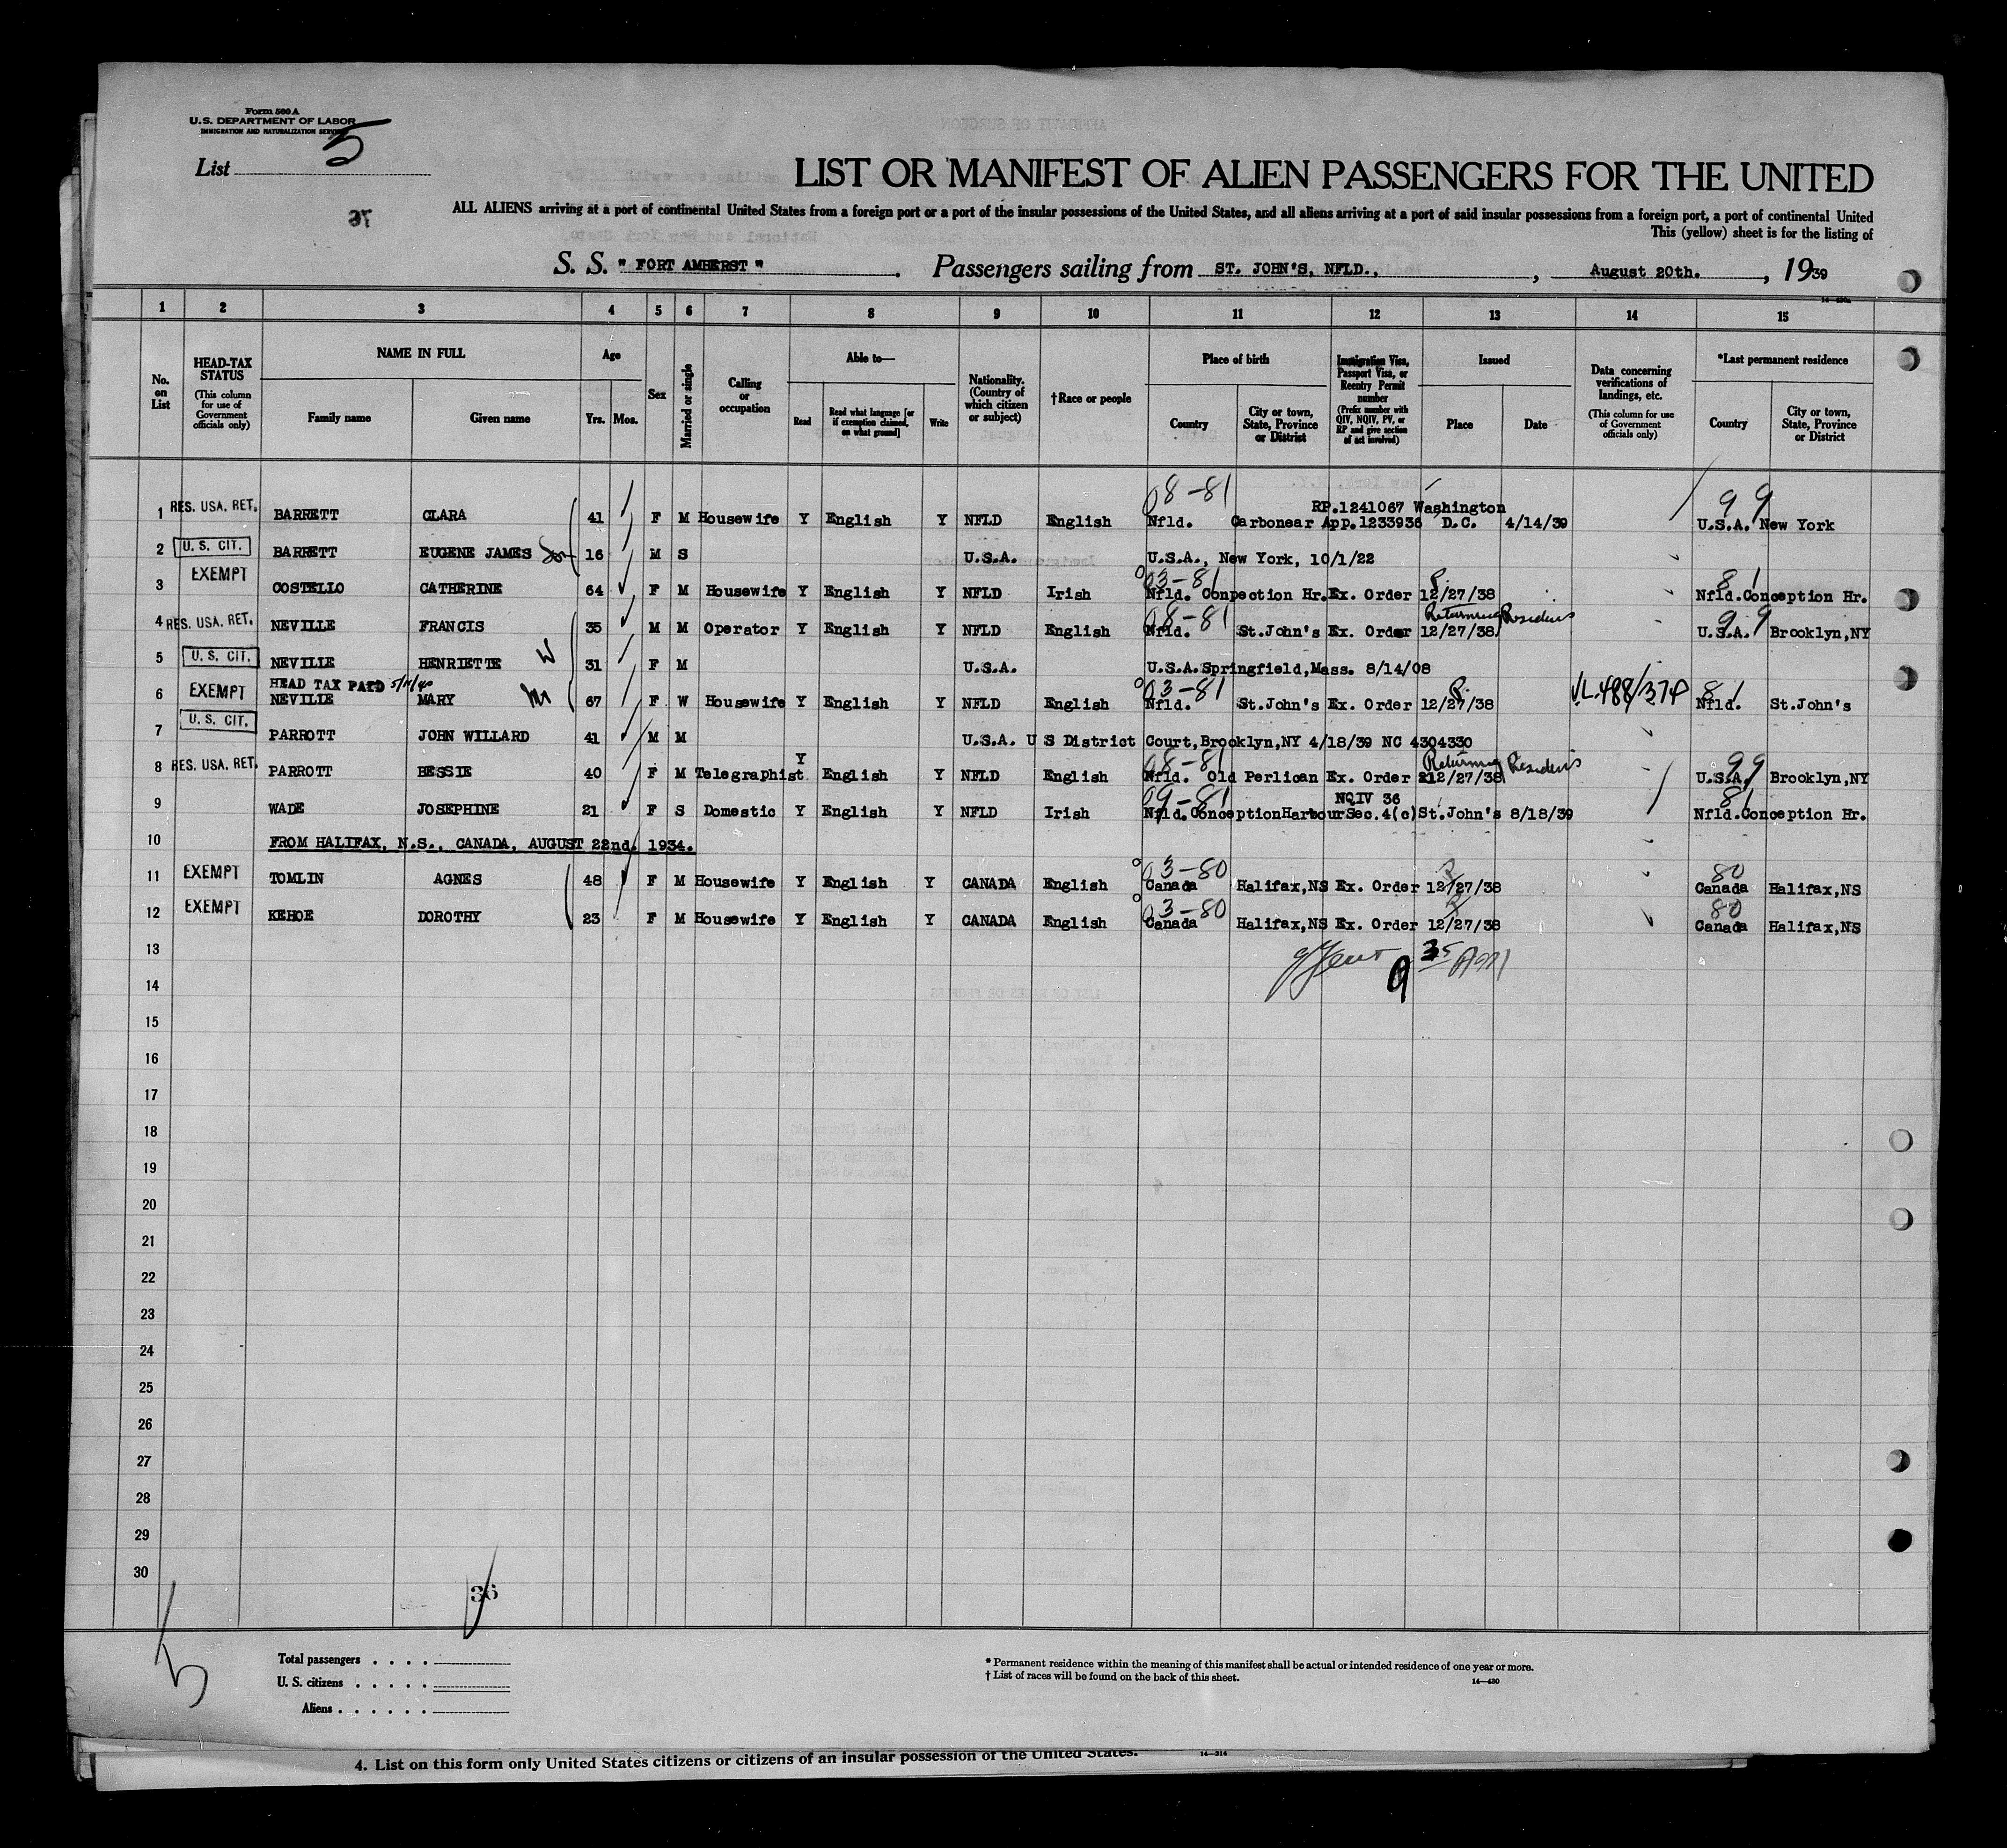 Form 500 A
U.S. DEPARTMENT OF LABOR
IMMIGRATION AND NATURALIZATION SERVICE
List 5
LIST OR MANIFEST OF ALIEN PASSENGERS FOR THE UNITED
ALL ALIENS arriving at a port of continental United States from a foreign port or a port of the insular possessions of the United States, and all aliens arriving at a port of said insular possessions from a foreign port, a port of continental United
This (yellow) sheet is for the listing of
S. S. " FORT AMHERST " . Passengers sailing from ST. JOHN'S, NFLD., , August 20th. , 1939
1 2 3 4 5 6 7 8 9 10 11 12 13 14 15
No. on List
HEAD-TAX STATUS (This column for use of Government officials only)
NAME IN FULL
Family name Given name
Age
Yrs. Mos.
Sex
Married or single
Calling or occupation
Able to—
Read Read what language [or if exemption claimed, on what ground] Write
Nationality. (Country of which citizen or subject)
†Race or people
Place of birth
Country City or town, State, Province or District
Immigration Visa, Passport Visa, or Reentry Permit number (Prefix number with QIV, NQIV, PV, or RP and give section of act involved)
Issued
Place Date
Data concerning verifications of landings, etc. (This column for use of Government officials only)
*Last permanent residence
Country City or town, State, Province or District
08-81 99
RP.1241067 Washington
1 RES. USA. RET. BARRETT CLARA 41 F M Housewife Y English Y NFLD English Nfld. Carbonear App.1233936 D.C. 4/14/39 U.S.A. New York
2 U. S. CIT. BARRETT EUGENE JAMES Son 16 M S U.S.A. U.S.A., New York, 10/1/22
03-81 81
3 EXEMPT COSTELLO CATHERINE 64 F M Housewife Y English Y NFLD Irish Nfld. Conpection Hr. Ex. Order 12/27/38 Nfld. Conception Hr.
08-81 Returning Resident 99
4 RES. USA. RET. NEVILLE FRANCIS 35 M M Operator Y English Y NFLD English Nfld. St.John's Ex. Order 12/27/38 U.S.A. Brooklyn,NY
5 U. S. CIT. NEVILLE HENRIETTE W 31 F M U.S.A. U.S.A. Springfield,Mass. 8/14/08
HEAD TAX PAID 5/11/40
03-81 81
6 EXEMPT NEVILLE MARY M 67 F W Housewife Y English Y NFLD English Nfld. St.John's Ex. Order 12/27/38 Nfld. St.John's
7 U. S. CIT. PARROTT JOHN WILLARD 41 M M U.S.A. U S District Court,Brooklyn,NY 4/18/39 NC 4304330
08-81 Returning Resident 99
8 RES. USA. RET. PARROTT BESSIE 40 F M Telegraphist Y English Y NFLD English Nfld. Old Perlican Ex. Order 12/27/38 U.S.A. Brooklyn,NY
09-81 NQIV 36 81
9 WADE JOSEPHINE 21 F S Domestic Y English Y NFLD Irish Nfld. Conception Harbour Sec.4(c) St.John's 8/18/39 Nfld. Conception Hr.
10 FROM HALIFAX, N.S., CANADA, AUGUST 22nd. 1934.
03-80 80
11 EXEMPT TOMLIN AGNES 48 F M Housewife Y English Y CANADA English Canada Halifax,NS Ex. Order 12/27/38 Canada Halifax,NS
03-80 80
12 EXEMPT KEHOE DOROTHY 23 F M Housewife Y English Y CANADA English Canada Halifax,NS Ex. Order 12/27/38 Canada Halifax,NS
13
14
15
16
17
18
19
20
21
22
23
24
25
26
27
28
29
30
36
5
Total passengers . . . .
U. S. citizens . . . . .
Aliens . . . . . .
* Permanent residence within the meaning of this manifest shall be actual or intended residence of one year or more.
† List of races will be found on the back of this sheet.
14—430
4. List on this form only United States citizens or citizens of an insular possession of the United States.
14—214